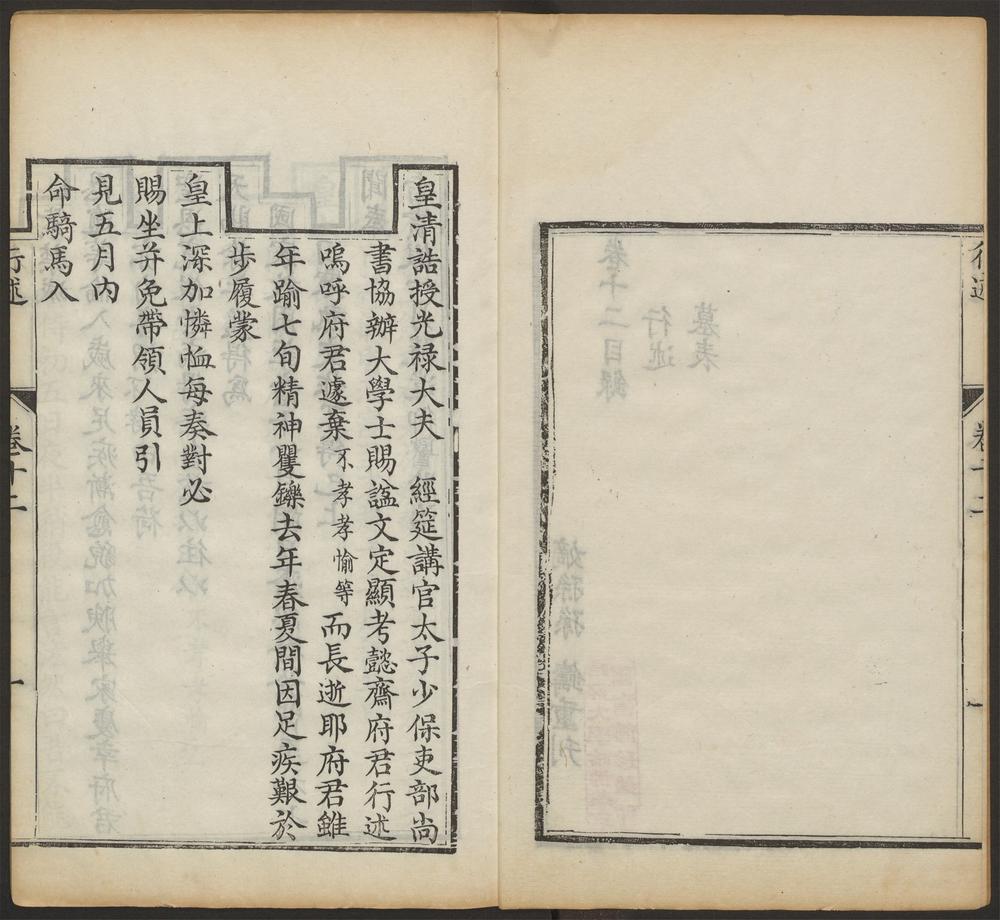 行述
卷十二
一
皇清誥授光禄大夫　經筵講官太子少保吏部尚
書協辦大學士賜諡文定顯考懿齋府君行述
嗚呼府君遽棄不孝孝愉等而長逝耶府君雖
年踰七旬精神矍鑠去年春夏間因足疾艱於
步履蒙
皇上深加憐恤每奏對必
賜坐并免帶領人員引
見五月內
命騎馬入
行述
卷十二
一